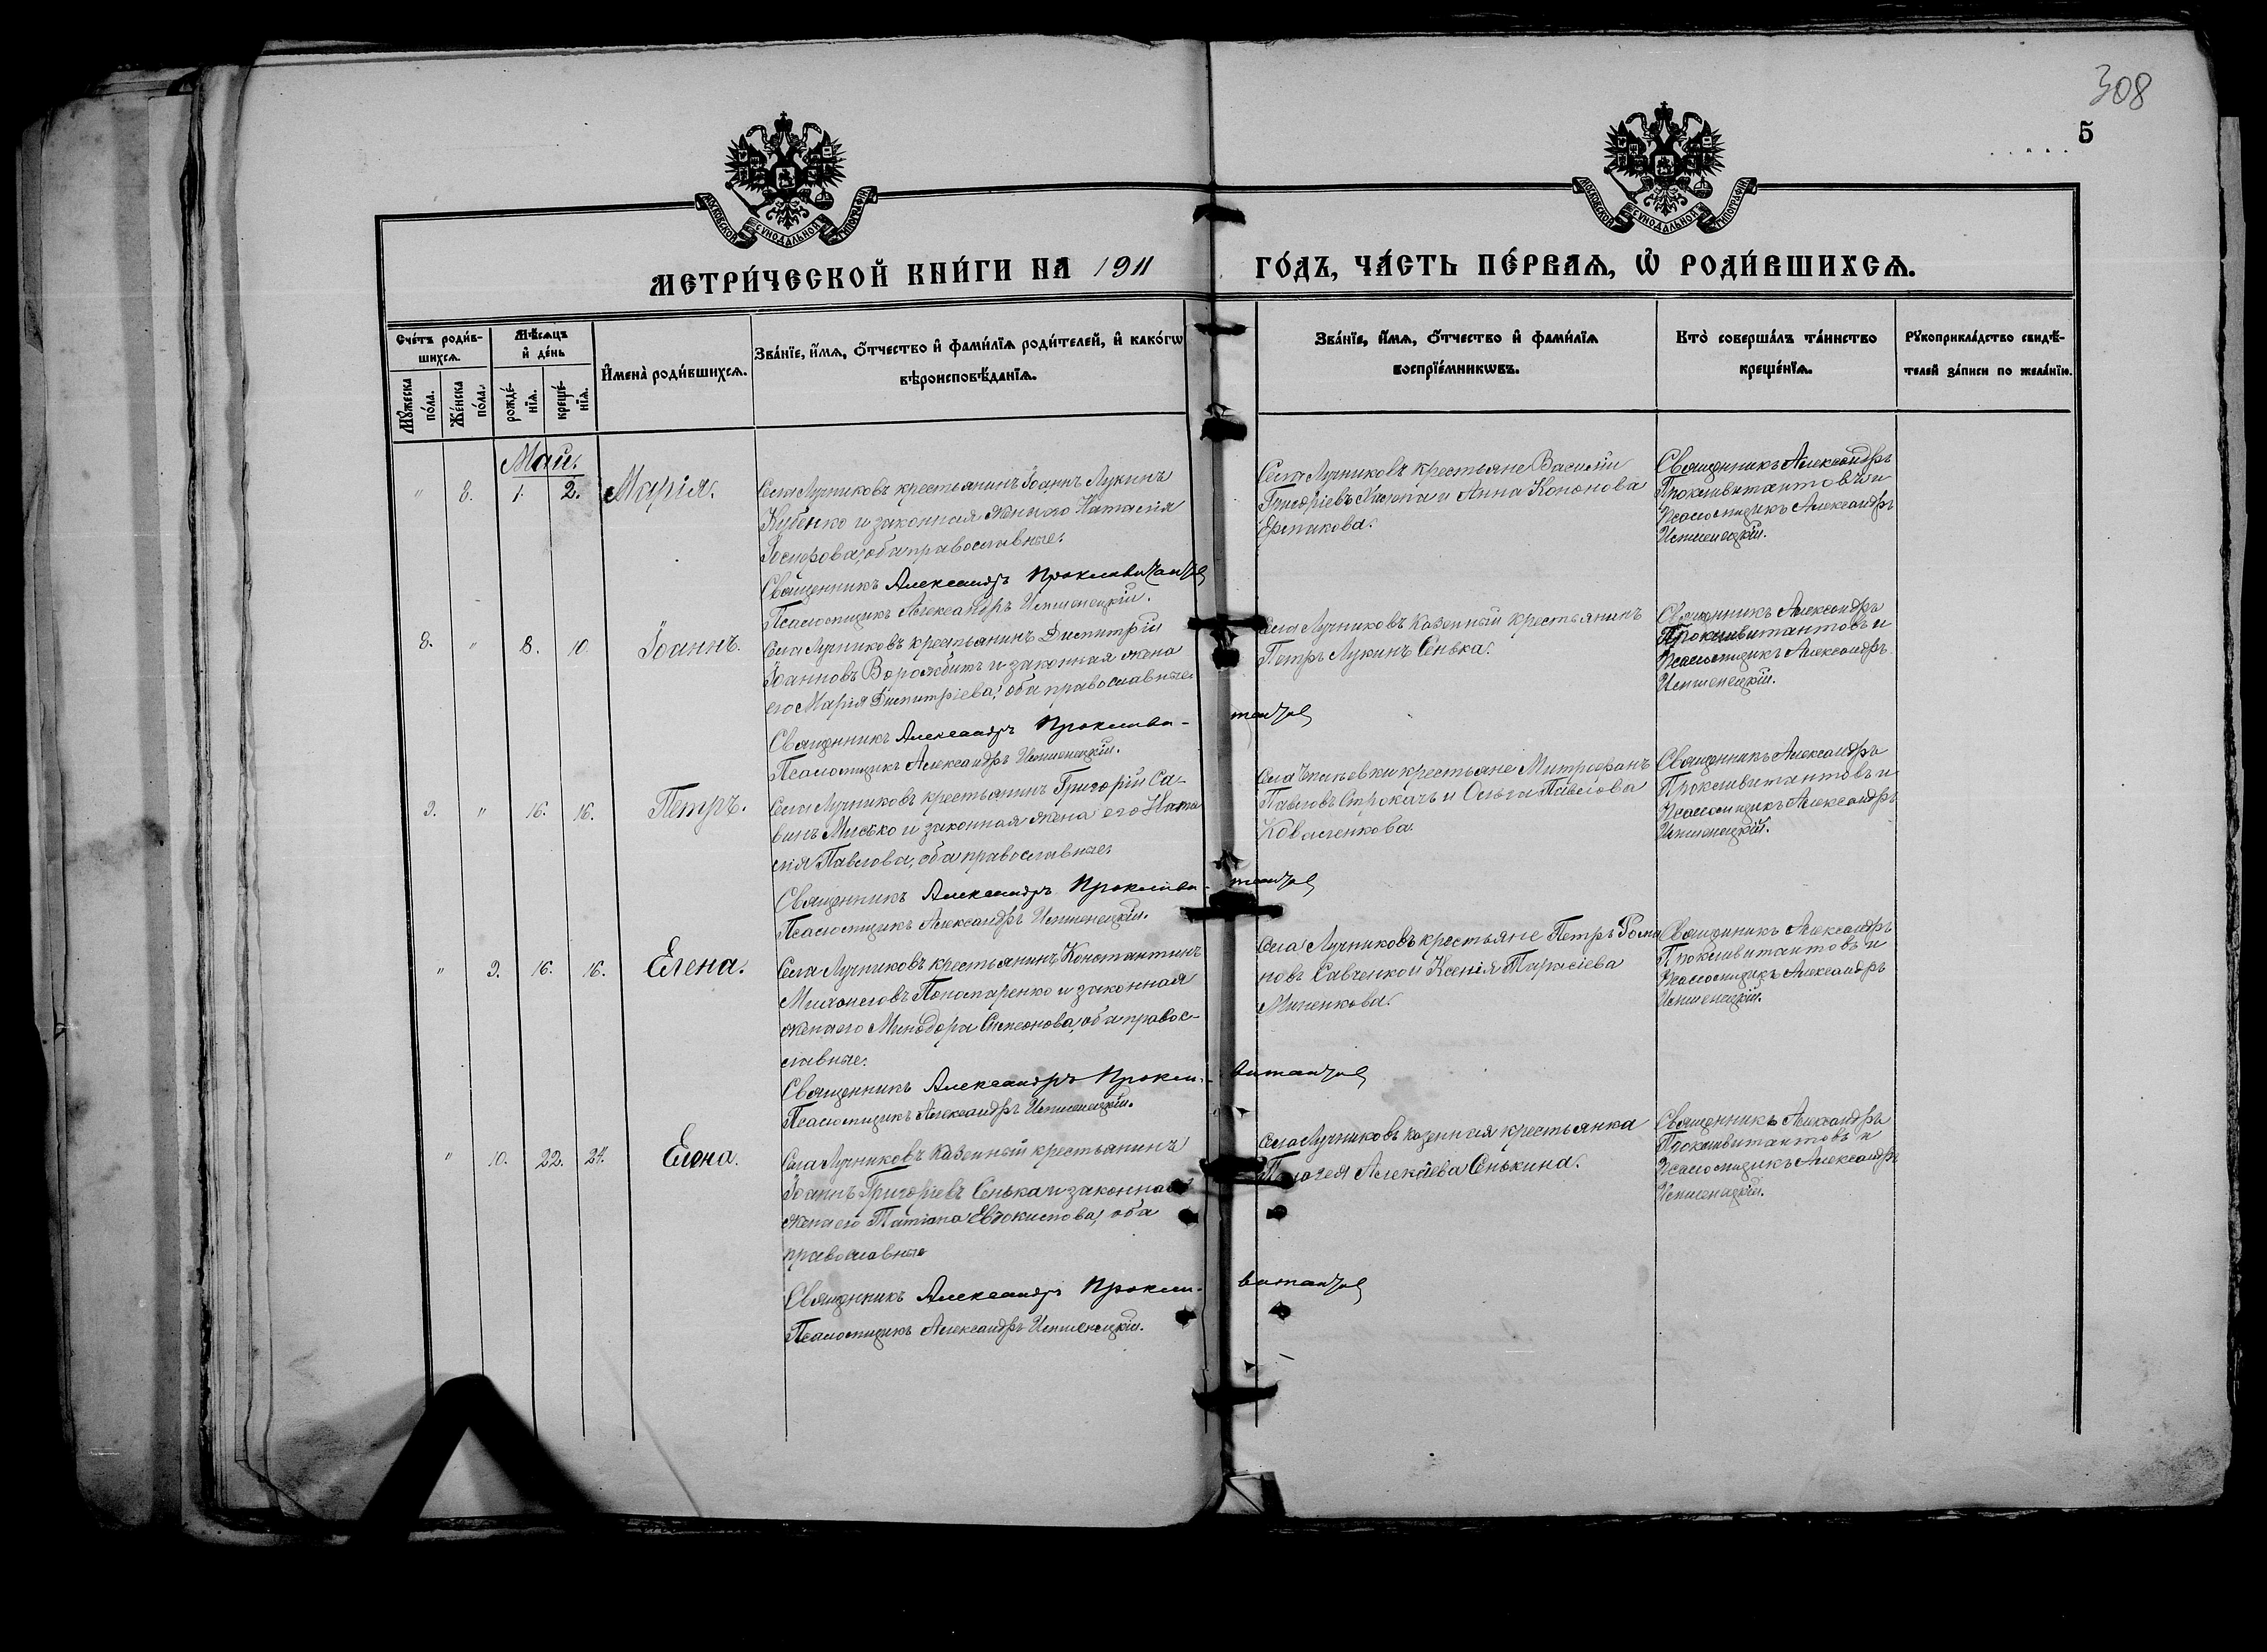 308
5
МОСКОВСКОЙ СУНОДАЛЬНОЙ ТИПОГРАФІИ
МОСКОВСКОЙ СУНОДАЛЬНОЙ ТИПОГРАФІИ
МЕТРИ́ЧЕСКОЙ КНИ́ГИ НА 1911 ГО́ДЪ, ЧА́СТЬ ПЕ́РВАѦ, Ѡ҆ РОДИ́ВШИХСѦ.
Сче́тъ роди́в-
шихсѧ.
Мꙋ́жеска
по́ла.
Же́нска
по́ла.
Мѣ́сѧцъ
и҆ де́нь
рожде́-
нїѧ.
креще́-
нїѧ.
И҆мена̀ роди́вшихсѧ.
Зва́нїе, и҆́мѧ, ѻ҆́тчество и҆ фами́лїѧ роди́телей, и҆ како́гѡ
вѣроисповѣ́данїѧ.
Зва́нїе, и҆́мѧ, ѻ҆́тчество и҆ фами́лїѧ
воспрїе́мникѡвъ.
Кто̀ соверша́лъ та́инство
креще́нїѧ.
Рꙋкоприкла́дство свидѣ́-
телей за́писи по жела́нїю.
Май.
" 8. 1. 2. Марія.
Села Лучниковъ крестьянинъ Іоаннъ Лукинъ
Кубенко и законная жена его Наталія
Іосифова, оба православные.
Священникъ Александръ Проклавитантов
Псаломщикъ Александръ
Села Лучниковъ крестьяне Василій
Григоріевъ и Анна Кононова
Ермакова.
Священникъ Александръ
Проклавитантовъ и
Псаломщикъ Александръ
8. " 8. 10. Іоаннъ.
Села Лучниковъ крестьянинъ Димитрій
Іоанновъ Ворожбитъ и законная жена
его Марія Димитріева, оба православные.
Священникъ Александръ Проклави- тантов
Псаломщикъ Александръ
Села Лучниковъ казенный крестьянинъ
Петръ Лукинъ Сенька.
Священникъ Александръ
Проклавитантовъ и
Псаломщикъ Александръ
9. " 16. 16. Петръ.
Села Лучниковъ крестьянинъ Григорій Са-
винъ Мисько и законная жена его Ната
лія Павлова, оба православные.
Священникъ Александръ Проклави- тантов
Псаломщикъ Александръ
Села крестьяне Митрофанъ
Павловъ Строкачъ и Ольга Павлова
Коваленкова.
Священникъ Александръ
Проклавитантовъ и
Псаломщикъ Александръ
" 9. 16. 16. Елена.
Села Лучниковъ крестьянинъ Константинъ
Михаиловъ Пономаренко и законная
жена его Минодора Симеонова, оба правос-
лавные.
Священникъ Александръ Прокла- витантов
Псаломщикъ Александръ
Села Лучниковъ крестьяне Петръ Рома
новъ Савченко и Ксенія Тарасіева
Миненкова.
Священникъ Александръ
Проклавитантовъ и
Псаломщикъ Александръ
" 10. 22. 24. Елена.
Села Лучниковъ казенный крестьянинъ
Іоаннъ Григоріевъ Сенька и законная
жена его Татіана Евдокимова, оба
православные
Священникъ Александръ Прокла- витантов
Псаломщикъ Александръ
Села Лучниковъ казенная крестьянка
Пелагея Алексѣева Сенькина.
Священникъ Александръ
Проклавитантовъ и
Псаломщикъ Александръ